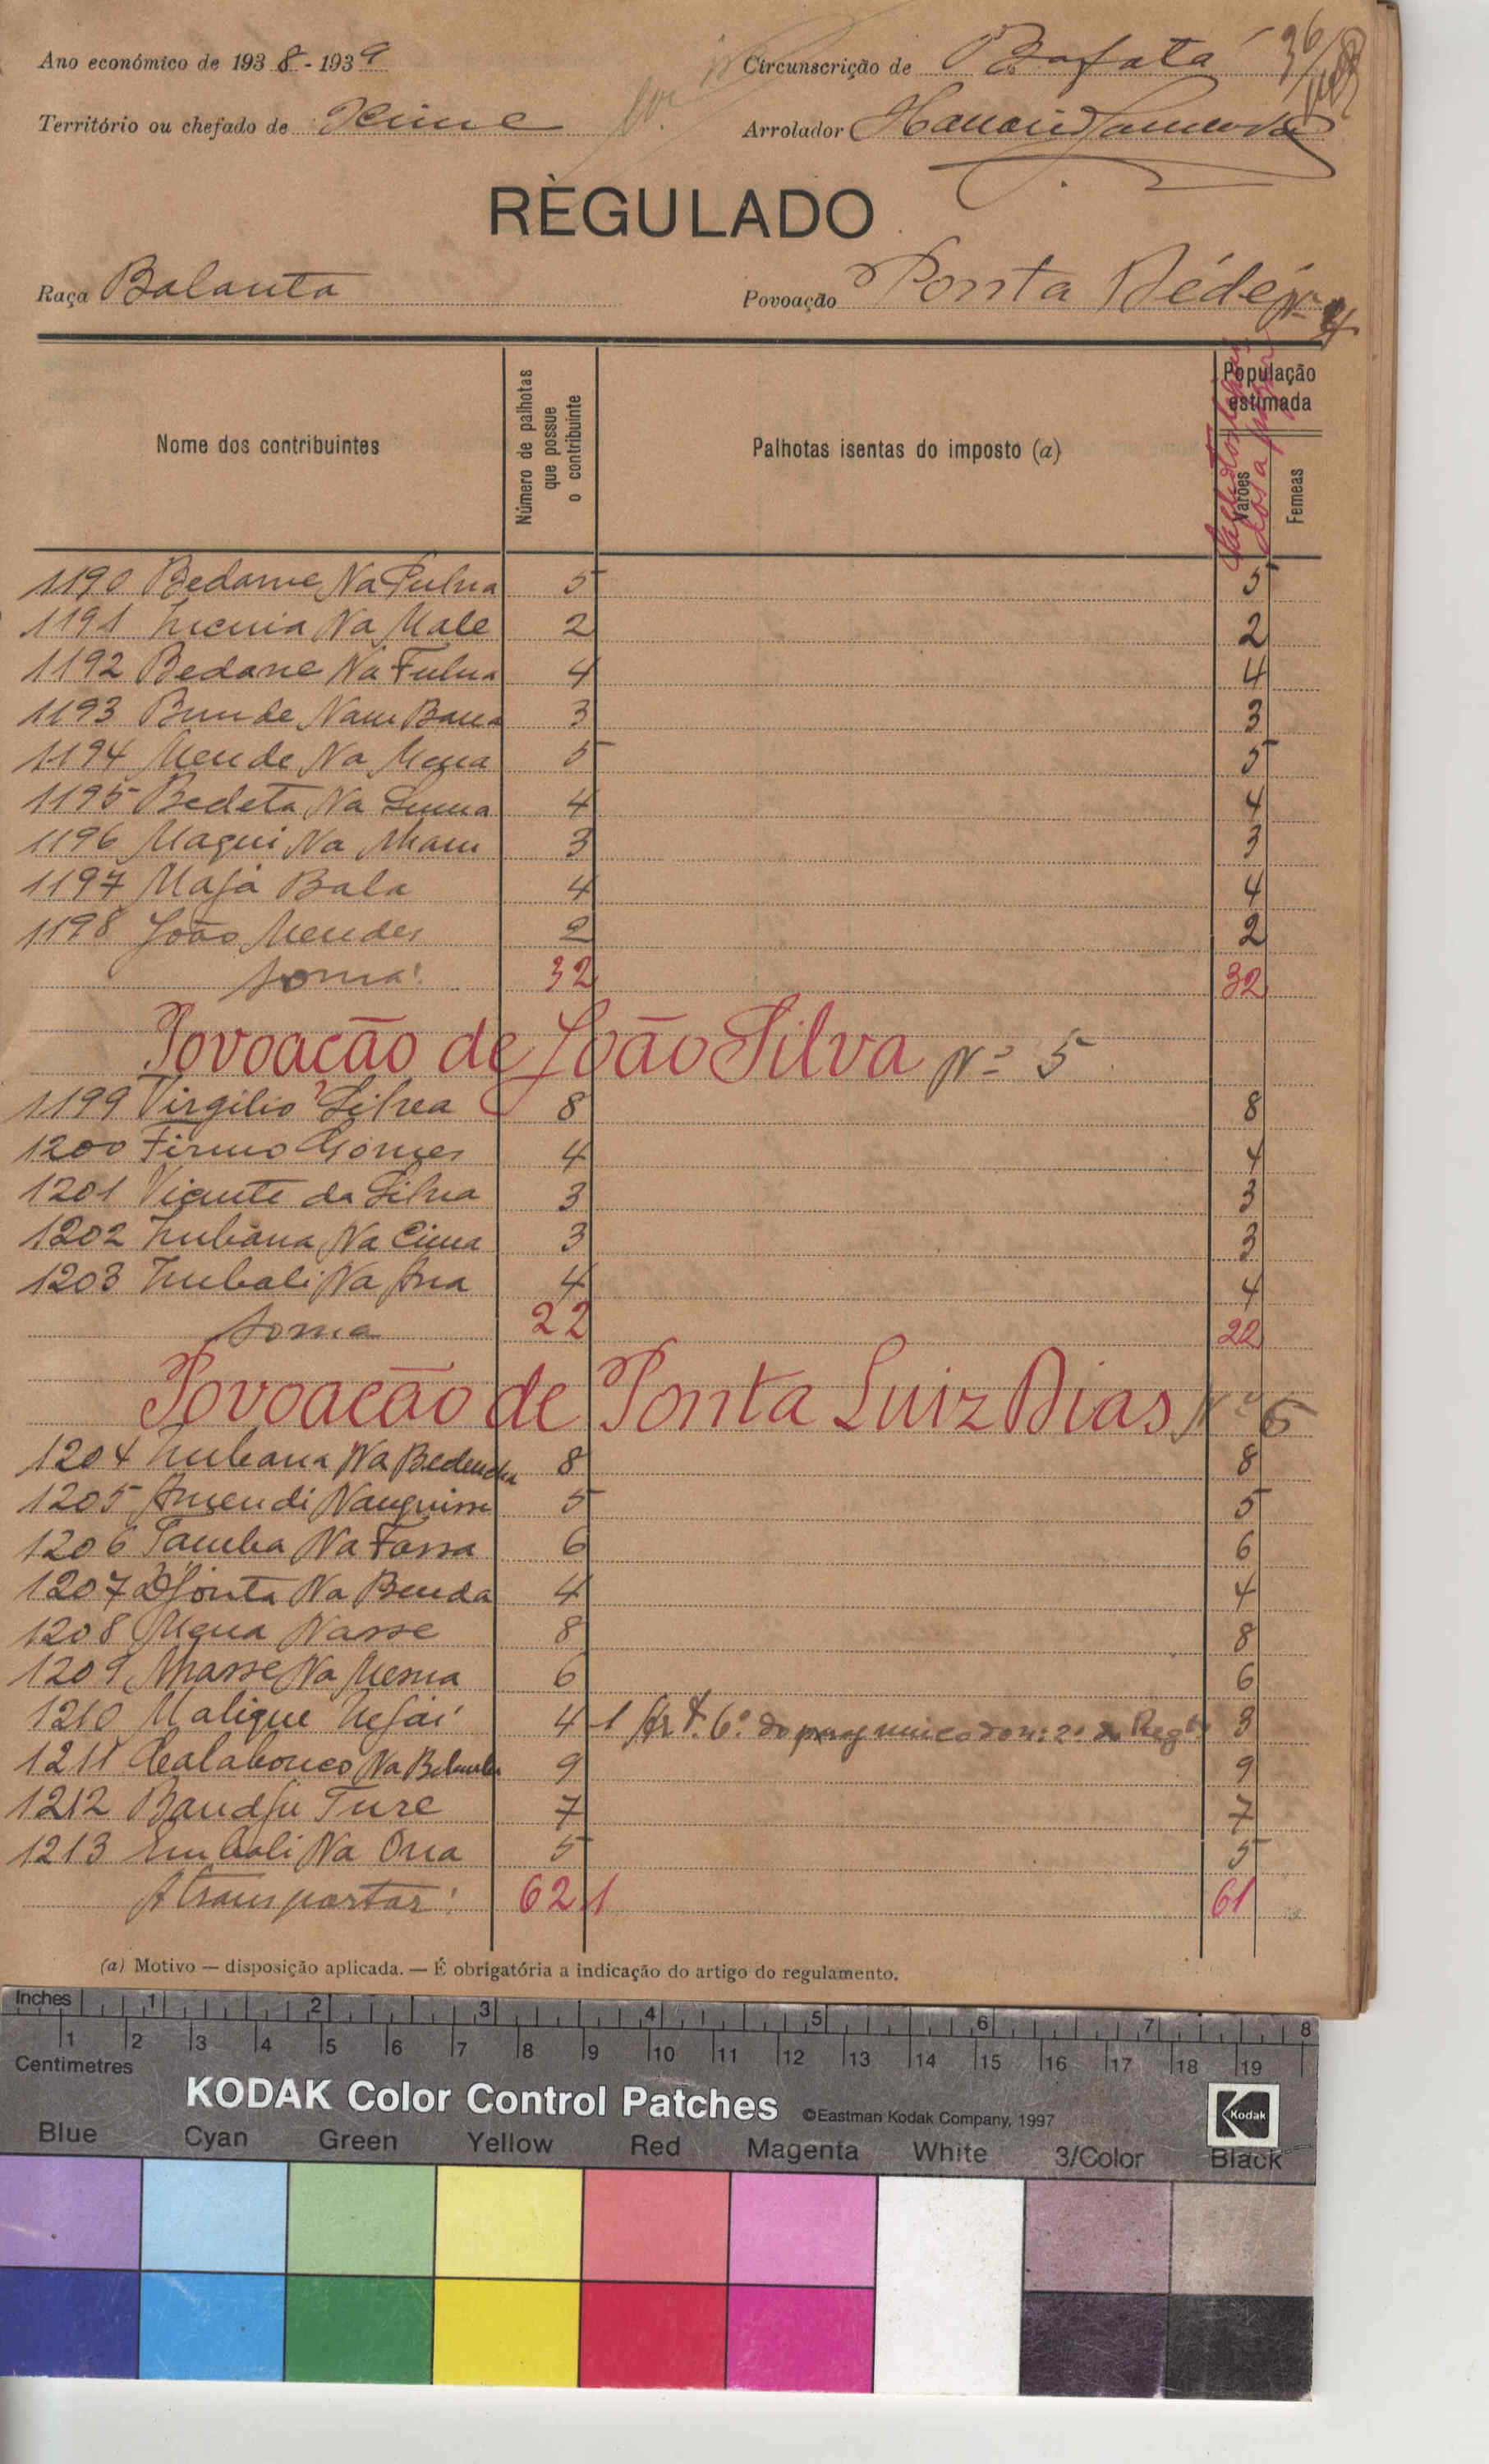 Ano económico de 1938-1939
Circunscrição de Bafatá 36
Território ou chefado de Xime
Arrolador
RÈGULADO
Raça Balanta
Povoação Ponta Dédé Nº 4
Nome dos contribuintes
Número de palhotas que possue o contribuinte
Palhotas isentas do imposto (a)
População estimada
Varões
Femeas
1190 Bedame Na Fulna 5 5
1191 Na Male 2 2
1192 Bedane Na Fulna 4 4
1193 Bunde Nam Bana 3 3
1194 Mende Na 5 5
1195 Bedeta Na 4 4
1196 Maqui Na Nham 3 3
1197 Majá Bala 4 4
1198 João Mendes 2 2
Soma: 32 32
Povoação de João Silva Nº 5
1199 Virgilio Silva 8 8
1200 Firmo Gomes 4 4
1201 Vicente da Silva 3 3
1202 Imbana Na Cima 3 3
1203 Imbali Na 4 4
Soma 22 22
Povoação de Ponta Luiz Dias Nº 6
1204 Imbana Na 8 8
1205 5 5
1206 Tamba Na Fassa 6 6
1207 Na Benda 4 4
1208 Nasse 8 8
1209 Nhasse Na 6 6
1210 Malique 4 1 Art. 6º do parag unico do nº 2º do Regto 3
1211 Calabouco Na 9 9
1212 Bandju Ture 7 7
1213 Imbali Na 5 5
A transportar: 62 1 61
(a) Motivo — disposição aplicada. — É obrigatória a indicação do artigo do regulamento.
Inches 1 2 3 4 5 6 7 8
1 2 3 4 5 6 7 8 9 10 11 12 13 14 15 16 17 18 19
Centimetres
KODAK Color Control Patches ©Eastman Kodak Company, 1997 Kodak
Blue Cyan Green Yellow Red Magenta White 3/Color Black